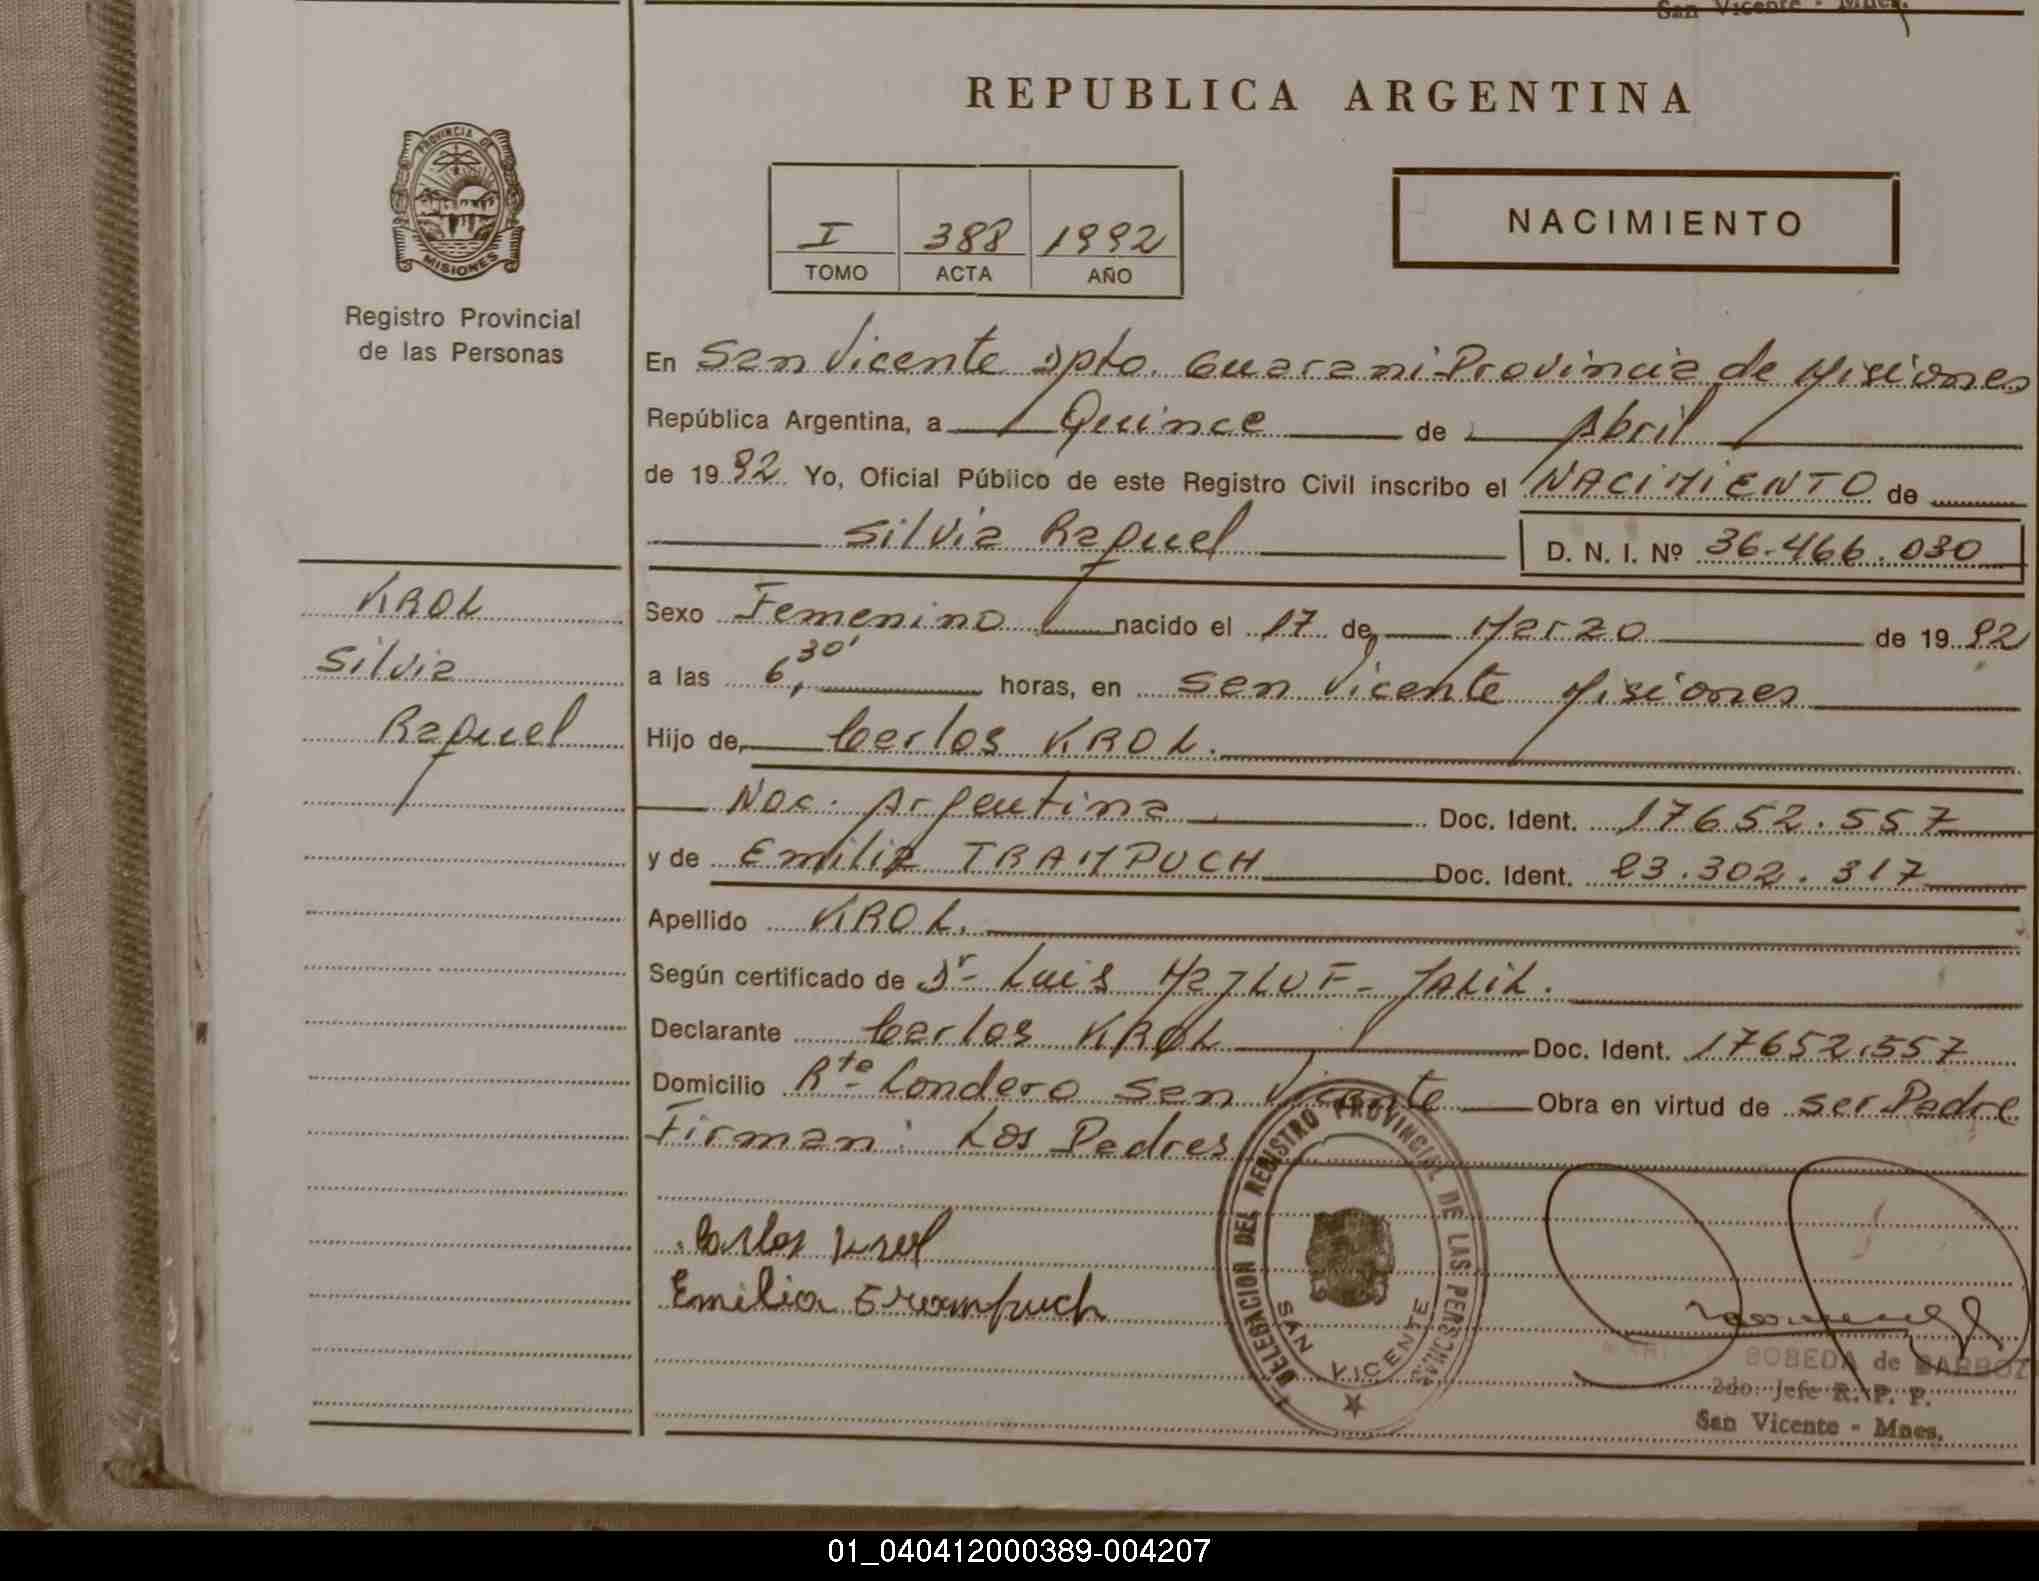 San Vicente - Mnes.
REPUBLICA ARGENTINA
PROVINCIA DE
MISIONES
Registro Provincial
de las Personas
I 388 1992
TOMO ACTA AÑO
NACIMIENTO
En San Vicente Dpto. Guarani Provincia de Misiones
República Argentina, a Quince de Abril
de 1992 Yo, Oficial Público de este Registro Civil inscribo el NACIMIENTO de
Silvia Raquel D. N. I. Nº 36.466.030
KROL
Silvia
Raquel
Sexo Femenino nacido el 17 de Marzo de 1992
a las 6,30' horas, en San Vicente Misiones
Hijo de Carlos KROL.
Nac. Argentina Doc. Ident. 17652.557
y de Emilia TRAMPUCH Doc. Ident. 23.302.317
Apellido KROL.
Según certificado de Dr. Luis MazLUF - JALIL.
Declarante Carlos KROL Doc. Ident. 17652.557
Domicilio Rte Londero San Vicente Obra en virtud de ser Padre
Firman: Los Padres
Carlos Krol
Emilia Trampuch
DELEGACION DEL REGISTRO PROVINCIAL DE LAS PERSONAS
SAN VICENTE
BOBEDA de BARBOZ
2do. Jefe R. P. P.
San Vicente - Mnes.
01_040412000389-004207